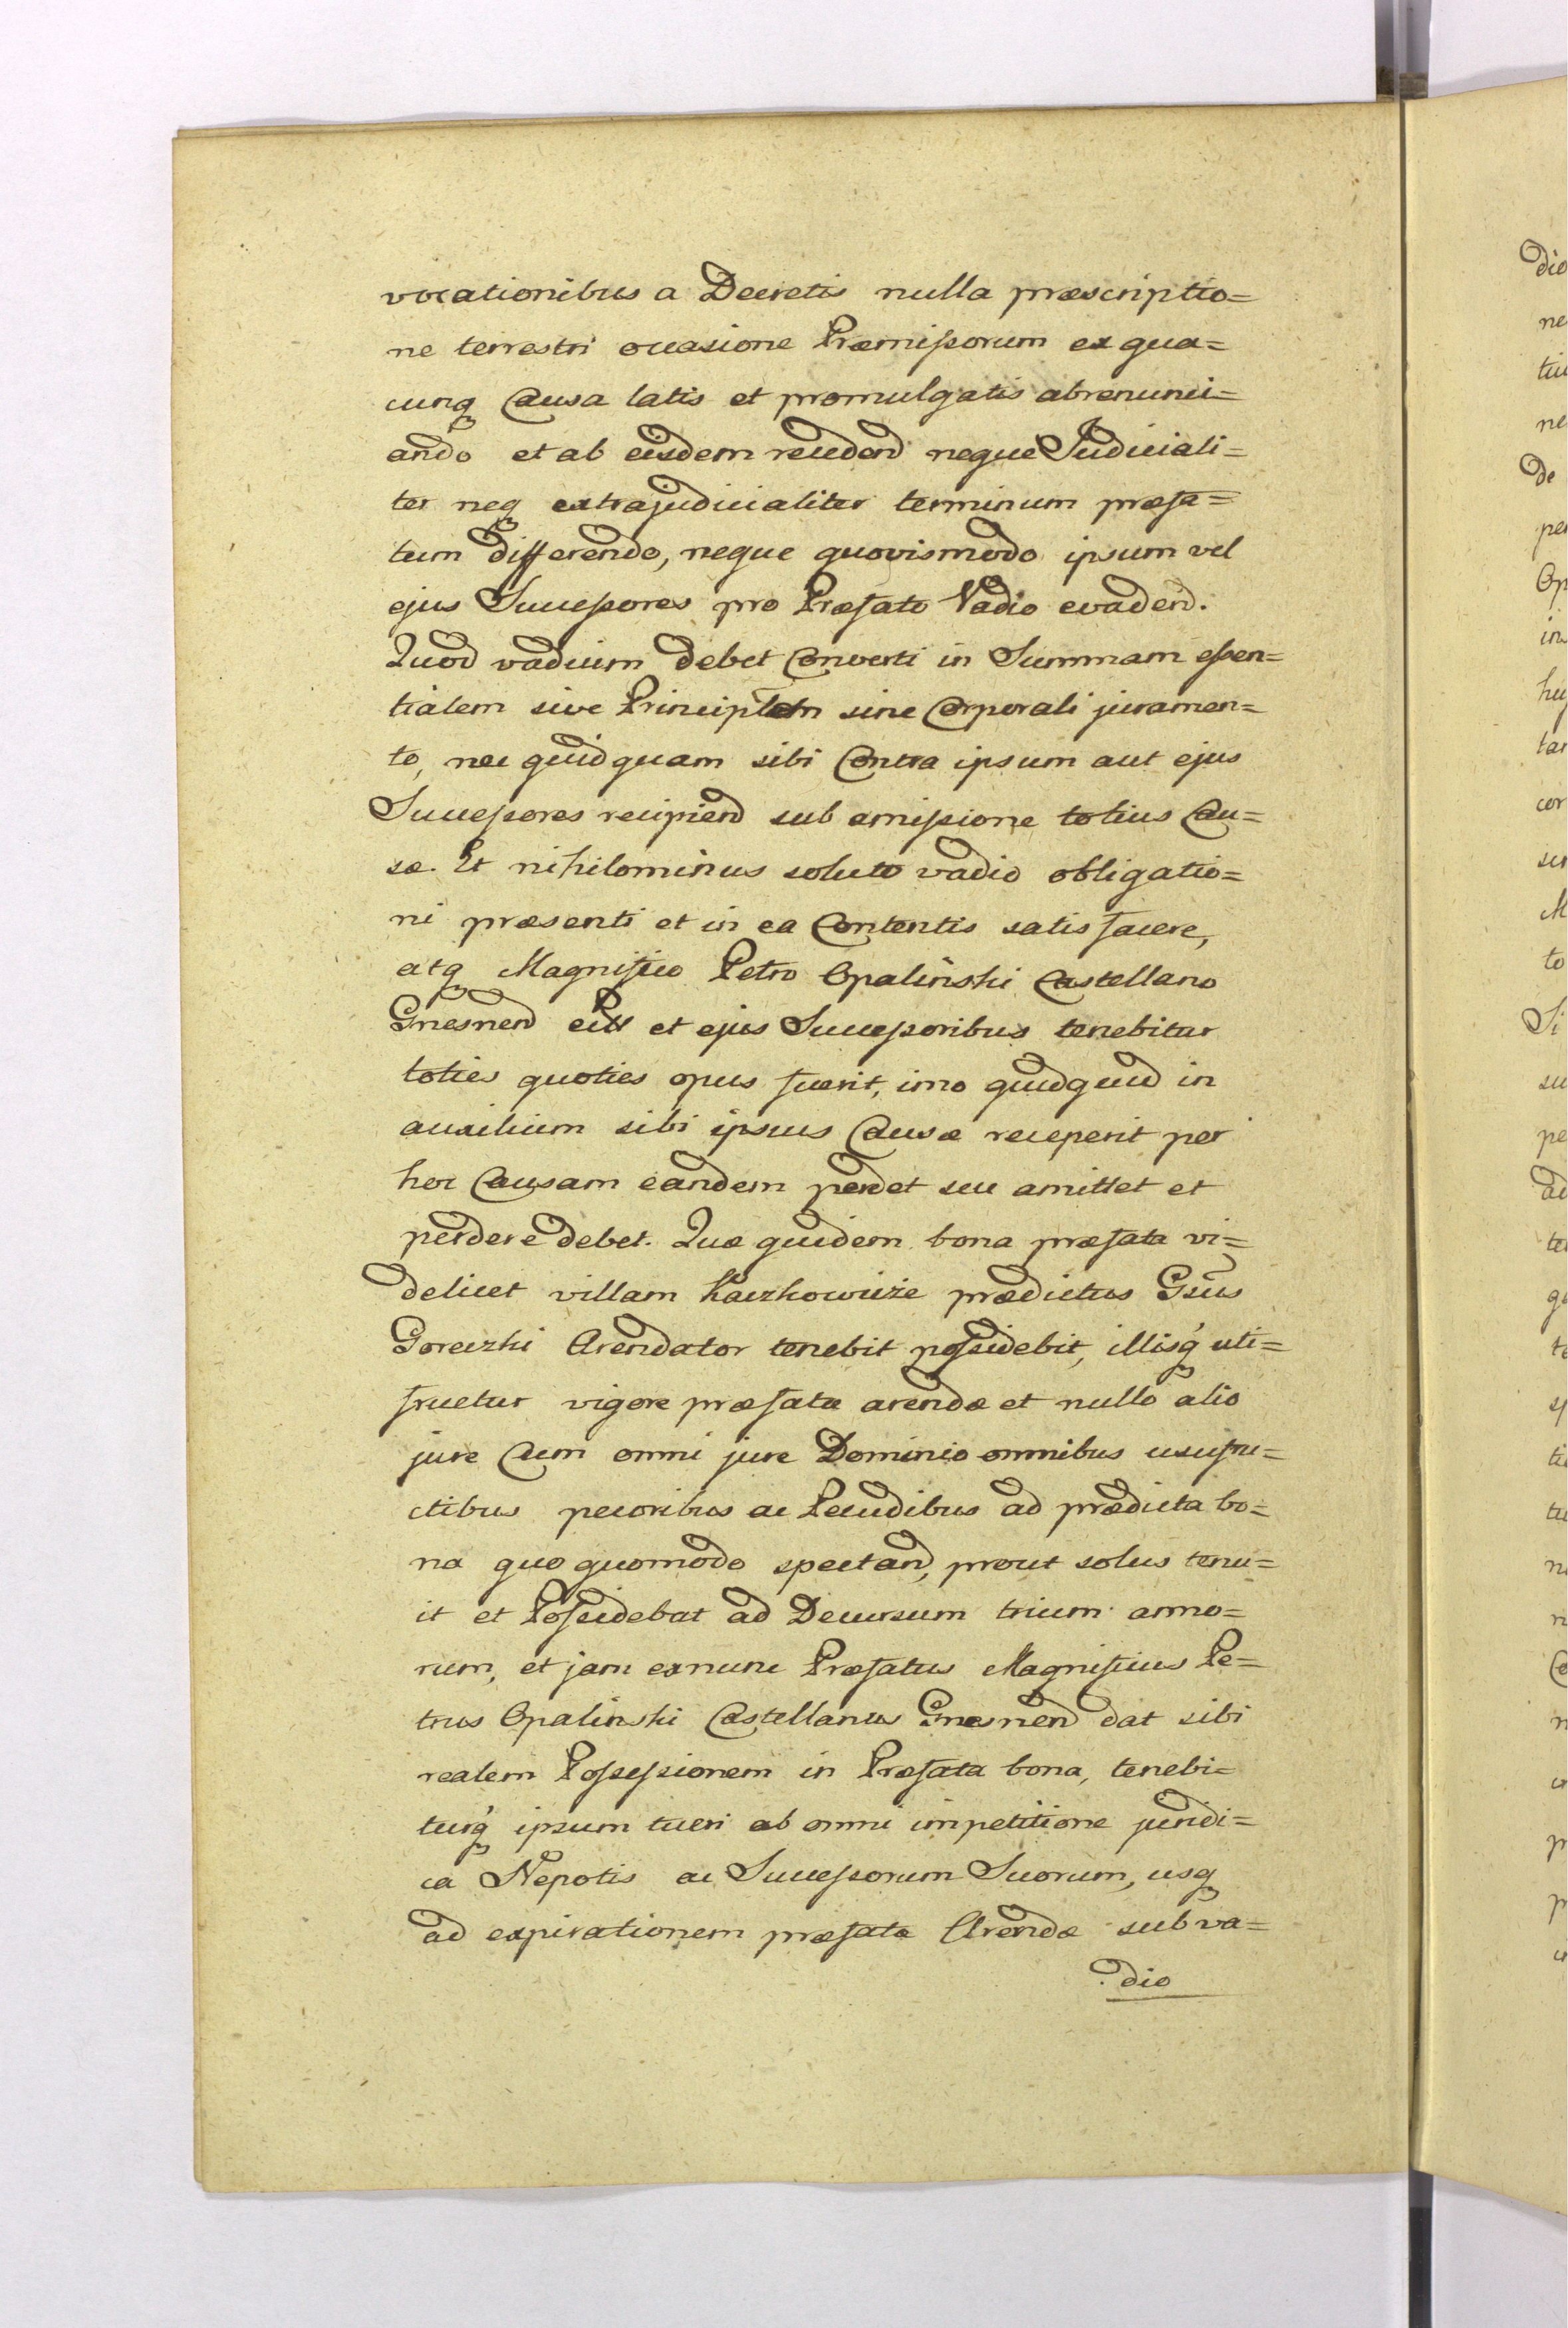 vocationibus a Decretis nulla præscriptio=
ne terrestri occasione Præmissorum ex qua=
cunq Causa latis et promulgatis abrenunci=
ando et ab eisdem recedend neque Judiciali=
ter neq extrajudicialiter terminum præfa=
tum differendo, neque quovismodo ipsum vel
ejus Successores pro Præfato Vadio evadend.
Quod vadium debet Converti in Summam essen=
tialem sive Principlem sine Corporali juramen=
to, nec quidquam sibi Contra ipsum aut ejus
Successores recipiend sub amissione totius Cau=
sæ. Et nihilominus soluto vadio obligatio=
ni præsenti et in ea Contentis satis facere,
atq Magnifico Petro Opaliński Castellano
Gnesnen et ejus Successoribus tenebitur
toties quoties opus fuerit, imo quidquid in
auxilium sibi ipsius Causæ receperit per
hoc Causam eandem perdet seu amittet et
perdere debet. Quæ quidem bona præfata vi=
delicet villam Kaczkowicze prædictus Gsus
Goreczki Arendator tenebit possidebit, illisq uti=
fruetur vigore præfatæ arendæ et nullo alio
jure Cum omni jure Dominio omnibus usufru=
ctibus pecoribus ac Pecudibus ad prædicta bo=
na quo quomodo spectand, prout solus tenu=
it et Possidebat ad Decursum trium anno=
rum, et jam exnunc Præfatus Magnificus Pe=
trus Opaliński Castellanus Gnesnen dat sibi
realem Possessionem in Præfata bona, tenebi=
turq ipsum tueri ab omni impetitione juridi=
ca Nepotis ac Successorum Suorum, usq
ad expirationem præfatæ Arendæ sub va=
dio